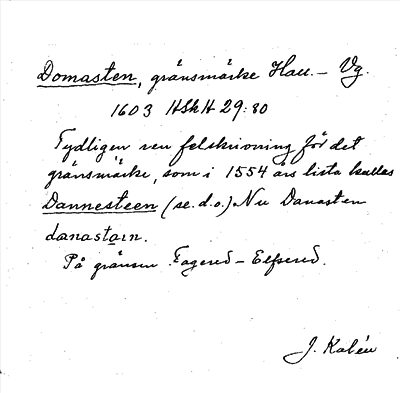 Domasten, gränsmärke Hall. – Vg.
1603 HSkH 29:80
Tydligen ren felskrivning för det
gränsmärke, som i 1554 års lista kallas
Dannesteen (se. d. o.) Nu Danasten
danastain.
På gränsen Fagered – Elfsered.
J. Kalén